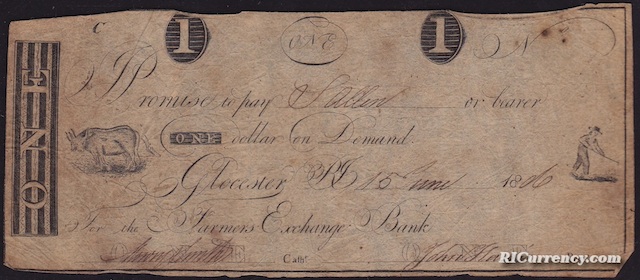 C 1 ONE 1 N
ONE
I Promise to pay S Allen or bearer
ONE dollar on Demand.
Glocester RI 15 June 1806
For the Farmers Exchange Bank
Smith Cashr John
RICurrency.com